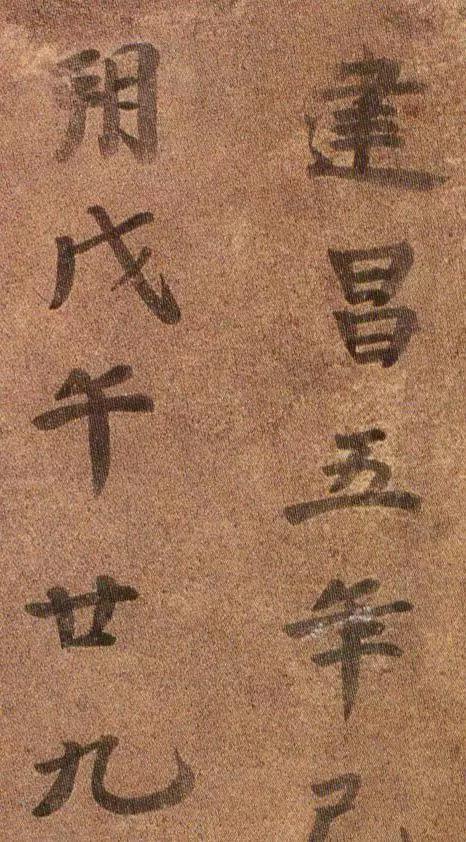 建昌五年己
朔戊午廿九